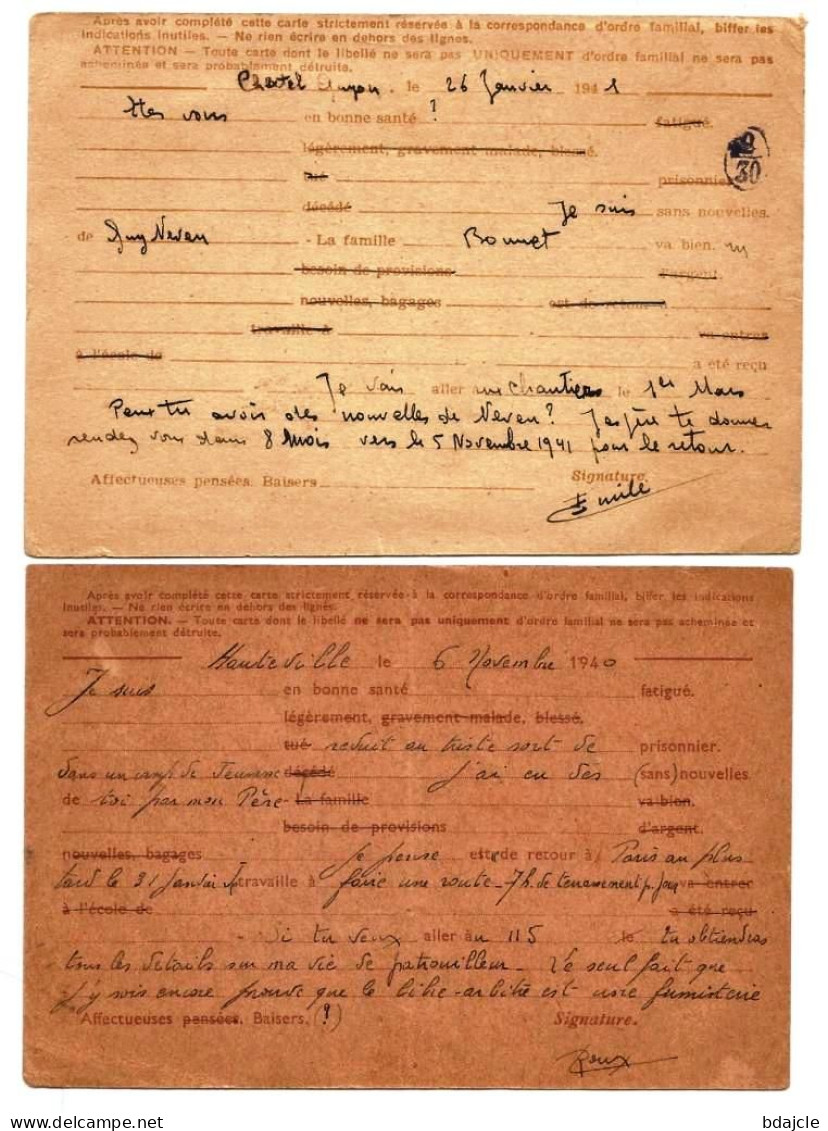 Après avoir complété cette carte strictement réservée à la correspondance d'ordre familial, biffer les
indications inutiles. — Ne rien écrire en dehors des lignes.
ATTENTION — Toute carte dont le libellé ne sera pas UNIQUEMENT d'ordre familial ne sera pas
acheminée et sera probablement détruite.
Chatel Guyon. le 26 Janvier 1941
Etes vous en bonne santé ? fatigué.
légèrement, gravement malade, blessé.
tué prisonnier
30
décédé Je suis sans nouvelles.
de Guy Neven - La famille Bonnet va bien.
besoin de provisions d'argent.
nouvelles, bagages est de retour à
travaille à va entrer
à l'école de a été reçu
Je vais aller aux Chantiers le 1er Mars
Peux tu avoir des nouvelles de Neven? J'espère te donner
rendez vous dans 8 Mois vers le 5 Novembre 1941 pour le retour.
Affectueuses pensées. Baisers Signature.
Emile
Après avoir complété cette carte strictement réservée à la correspondance d'ordre familial, biffer les indications
inutiles. — Ne rien écrire en dehors des lignes.
ATTENTION. — Toute carte dont le libellé ne sera pas uniquement d'ordre familial ne sera pas acheminée et
sera probablement détruite.
Hauteville le 6 Novembre 1940
Je suis en bonne santé fatigué.
légèrement, gravement malade, blessé.
tué réduit au triste sort de prisonnier.
dans un camp de jeunesse décédé j'ai eu des (sans) nouvelles
de toi par mon Père - La famille va bien.
besoin de provisions d'argent.
nouvelles, bagages je pense être de retour à Paris au plus
tard le 31 Janvier travaille à faire une route - 7h. de terrassement p. jour va entrer
à l'école de a été reçu
- Si tu veux aller au 115 le tu obtiendras
tous les détails sur ma vie de patrouilleur - Le seul fait que
j'y sois encore prouve que le libre-arbitre est une fumisterie
Affectueuses pensées. Baisers. (?) Signature.
Roux
bdajcle